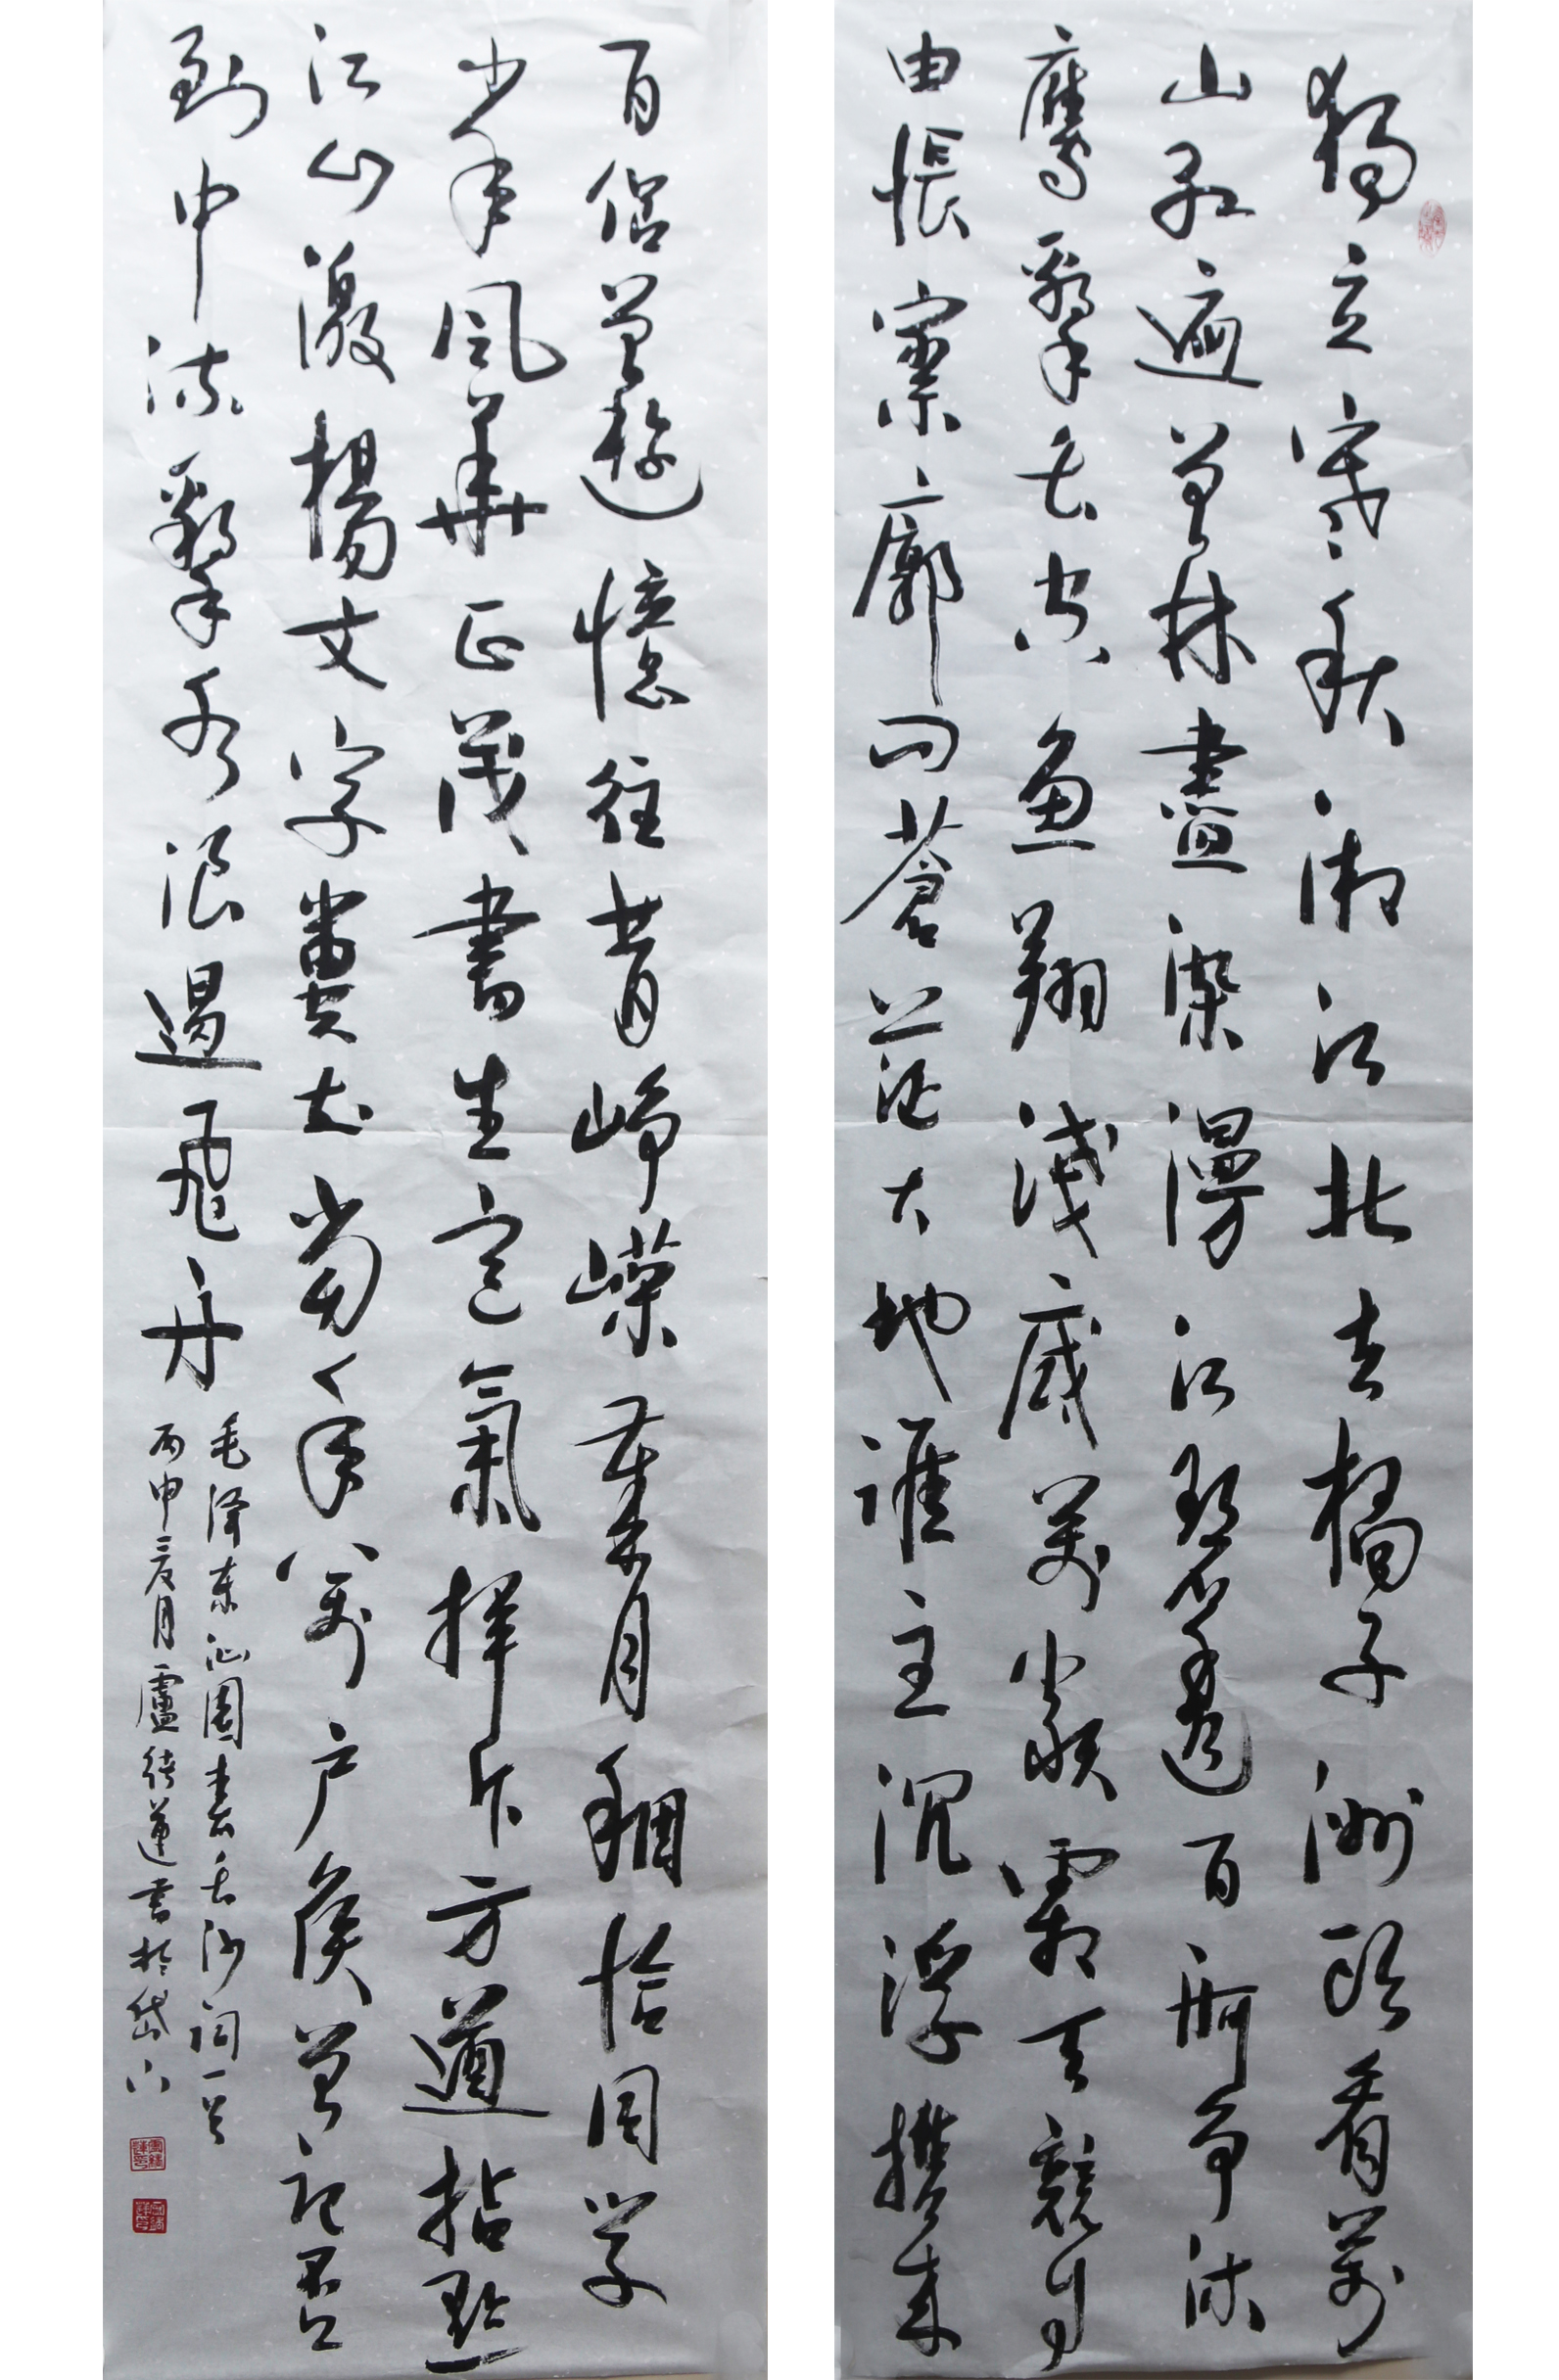 獨立寒秋湘江北去橘子洲頭看萬
山紅遍曾林盡染漫江碧透百舸爭流
鷹擊長空魚翔淺底萬類霜天競自
由悵寥廓問蒼茫大地誰主沉浮攜來
百侣曾遊憶往昔崢嶸歲月稠恰同學
少年風華正茂書生意氣揮斥方遒指點
江山激揚文字糞土當年萬户侯曾記否
到中流擊水浪遏飛舟
毛泽东沁園春長沙詞一首
丙申夏月盧緒蓮書於岱下